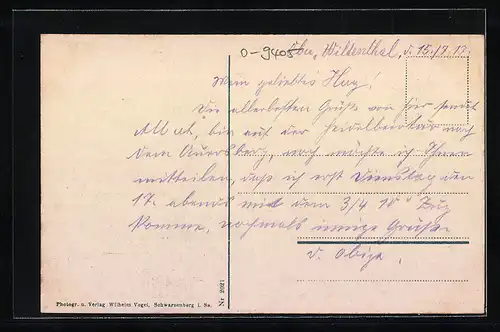 0-9405
Wildenthal, d. 15./7. 17.
Mein geliebtes
Die allerbesten Grüße von hier sendet
bin auf der Heidelbeerkur nach
dem Auersberg, noch möchte ich Ihnen
mitteilen, daß ich erst Dienstag den
17. abends mit dem 3/4 10 Zug
komme, nochmals innige Grüße
v. Obige.
Photogr. u. Verlag Wilhelm Vogel, Schwarzenberg i. Sa.
Nr 2021